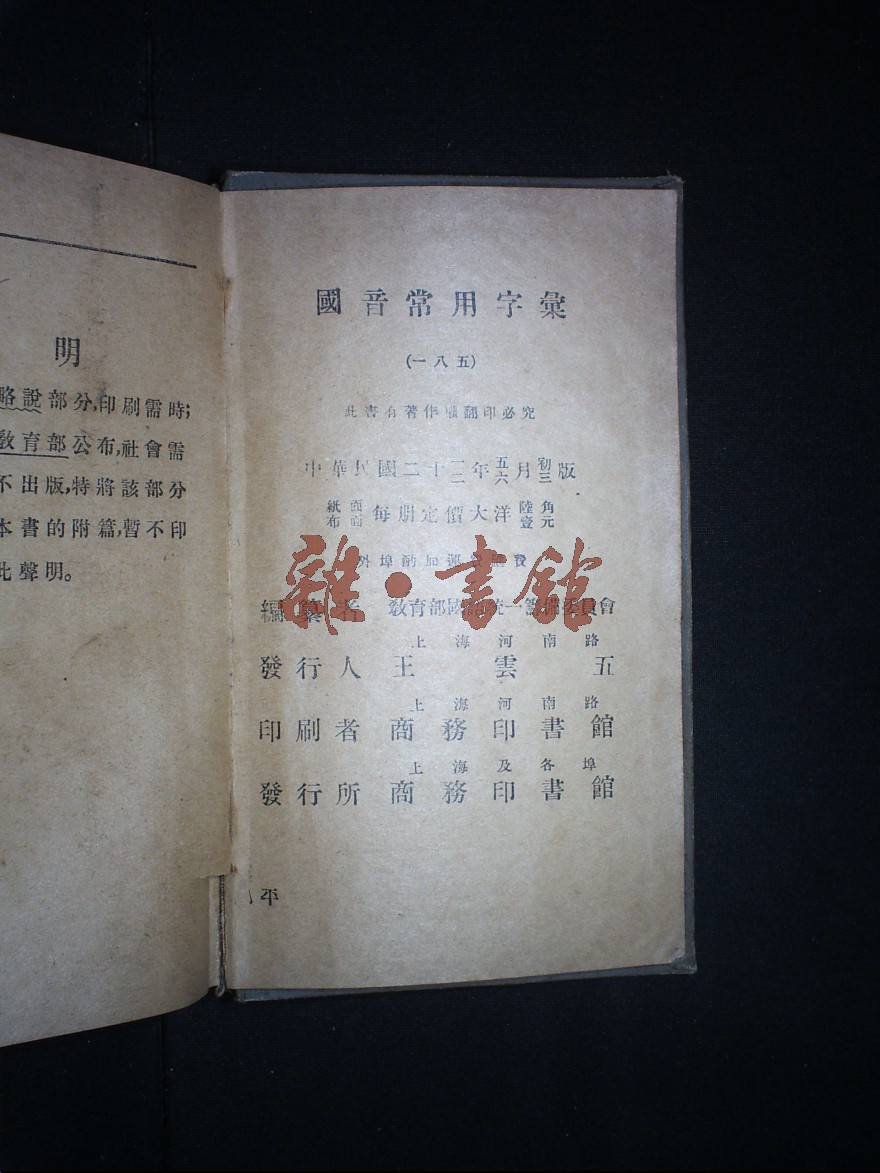 明
略說部分,印刷需時;
教育部公布,社會需
不出版,特將該部分
本書的附篇,暫不印
此聲明。
國音常用字彙
(一八五)
此書有著作權翻印必究
中華民國二十二年五六月初三版
紙布面面每册定價大洋陸壹角元
外埠酌加運費匯費
雜·書館
編纂者 教育部國語統一籌備委員會
上海河南路
發行人 王雲五
上海河南路
印刷者 商務印書館
上海及各埠
發行所 商務印書館
平